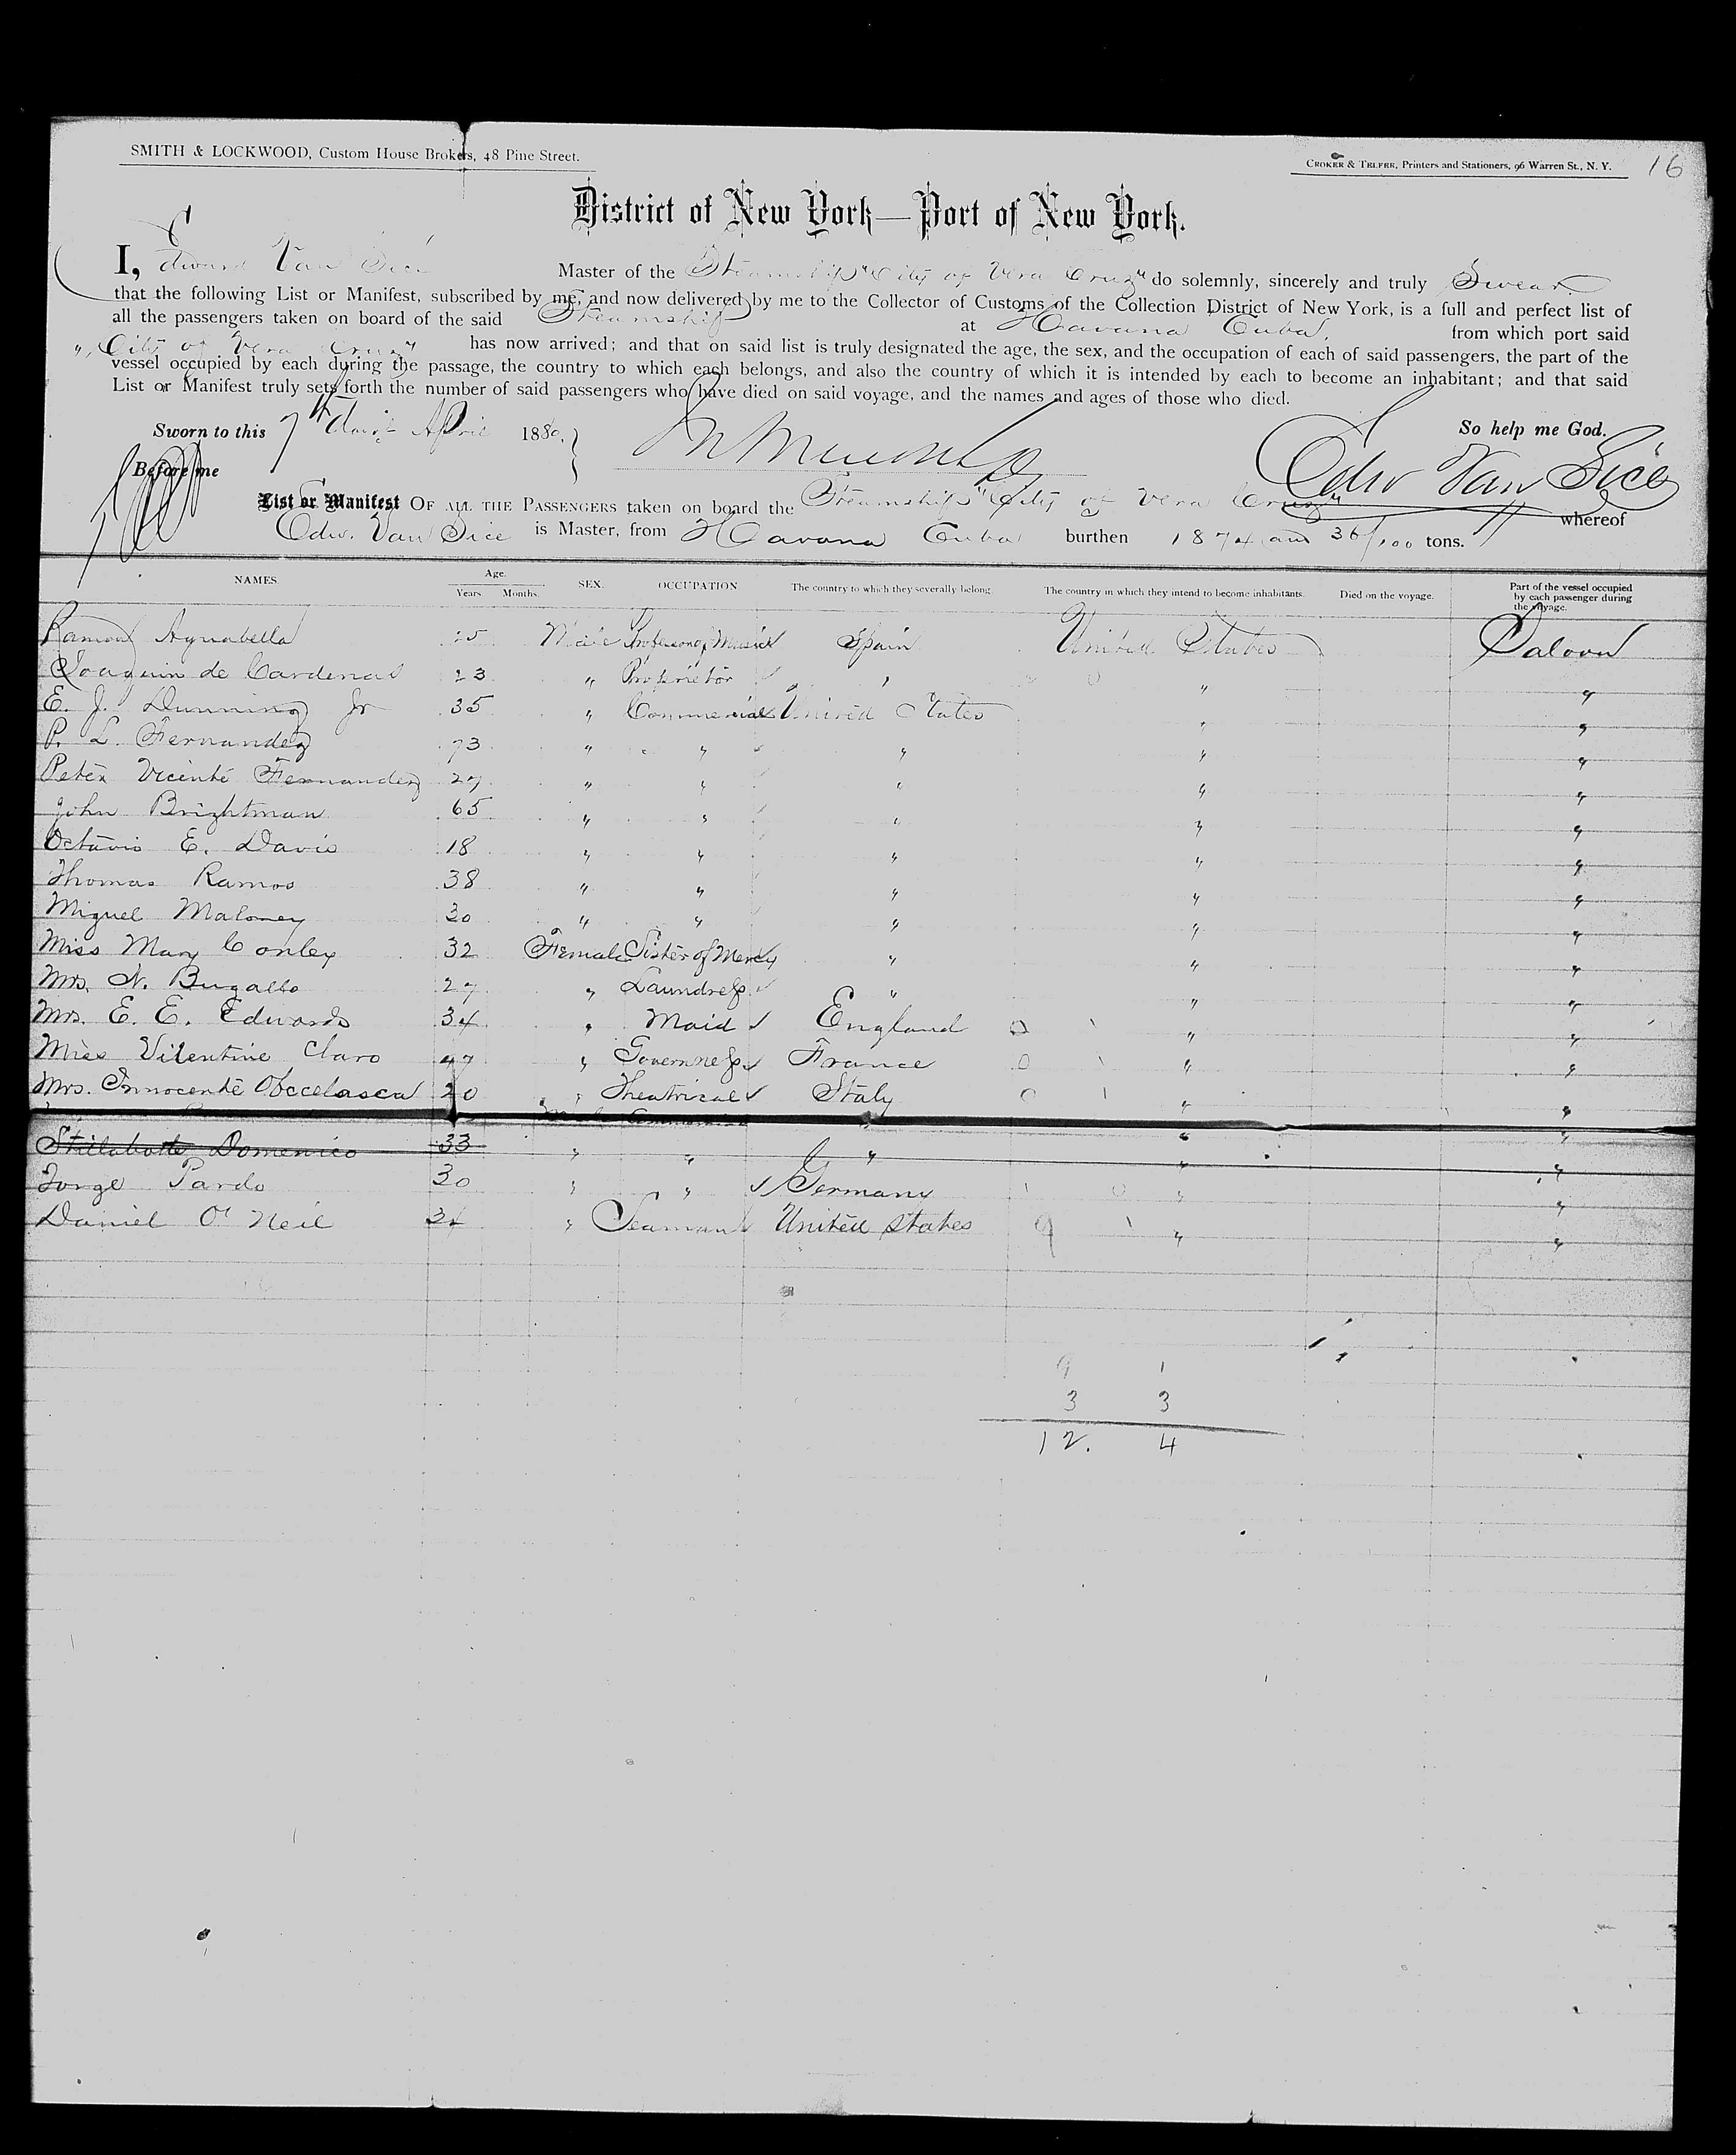 SMITH & LOCKWOOD, Custom House Brokers, 48 Pine Street.
CROKER & TELFER, Printers and Stationers, 96 Warren St., N. Y. 16
District of New York—Port of New York.
I, Edward Van Sice Master of the Steamship "City of Vera Cruz" do solemnly, sincerely and truly Swear
that the following List or Manifest, subscribed by me, and now delivered by me to the Collector of Customs of the Collection District of New York, is a full and perfect list of
all the passengers taken on board of the said Steamship at Havana Cuba, from which port said
"City of Vera Cruz" has now arrived; and that on said list is truly designated the age, the sex, and the occupation of each of said passengers, the part of the
vessel occupied by each during the passage, the country to which each belongs, and also the country of which it is intended by each to become an inhabitant; and that said
List or Manifest truly sets forth the number of said passengers who have died on said voyage, and the names and ages of those who died.
Sworn to this 7th day of April 1880, So help me God.
Before me Edw Van Sice
List or Manifest OF ALL THE PASSENGERS taken on board the Steamship "City of Vera Cruz" whereof
Edw. Van Sice is Master, from Havana Cuba burthen 1874 and 36/100 tons.
NAMES. Age. Years Months. SEX. OCCUPATION The country to which they severally belong The country in which they intend to become inhabitants. Died on the voyage. Part of the vessel occupied by each passenger during the voyage.
Ramon Aguabella 25 Male Professor of Music Spain United States Saloon
Joaquin de Cardenas 23 " Proprietor " " "
E. J. Dunning Jr 35 " Commercial United States " "
P. L. Fernandez 73 " " " " "
Peter Vicente Fernandez 27 " " " " "
John Brightman 65 " " " " "
Octavio E. Davis 18 " " " " "
Thomas Ramos 38 " " " " "
Miguel Maloney 30 " " " " "
Miss Mary Conley 32 Female Sister of Mercy " " "
Mrs. N. Bugallo 27 " Laundress " " "
Mrs. E. E. Edwards 34 " Maid England 0 1 " "
Miss Vilentine Claro 47 " Governess France 0 1 " "
Mrs. Innocente Occelasca 20 " Theatrical Italy 0 1 " "
Domenico 33 " " " " "
Jorge Pardo 30 " " Germany 1 0 " "
Daniel O'Neil 34 " Seaman United States 9 1 " "
9 1
3 3
12. 4